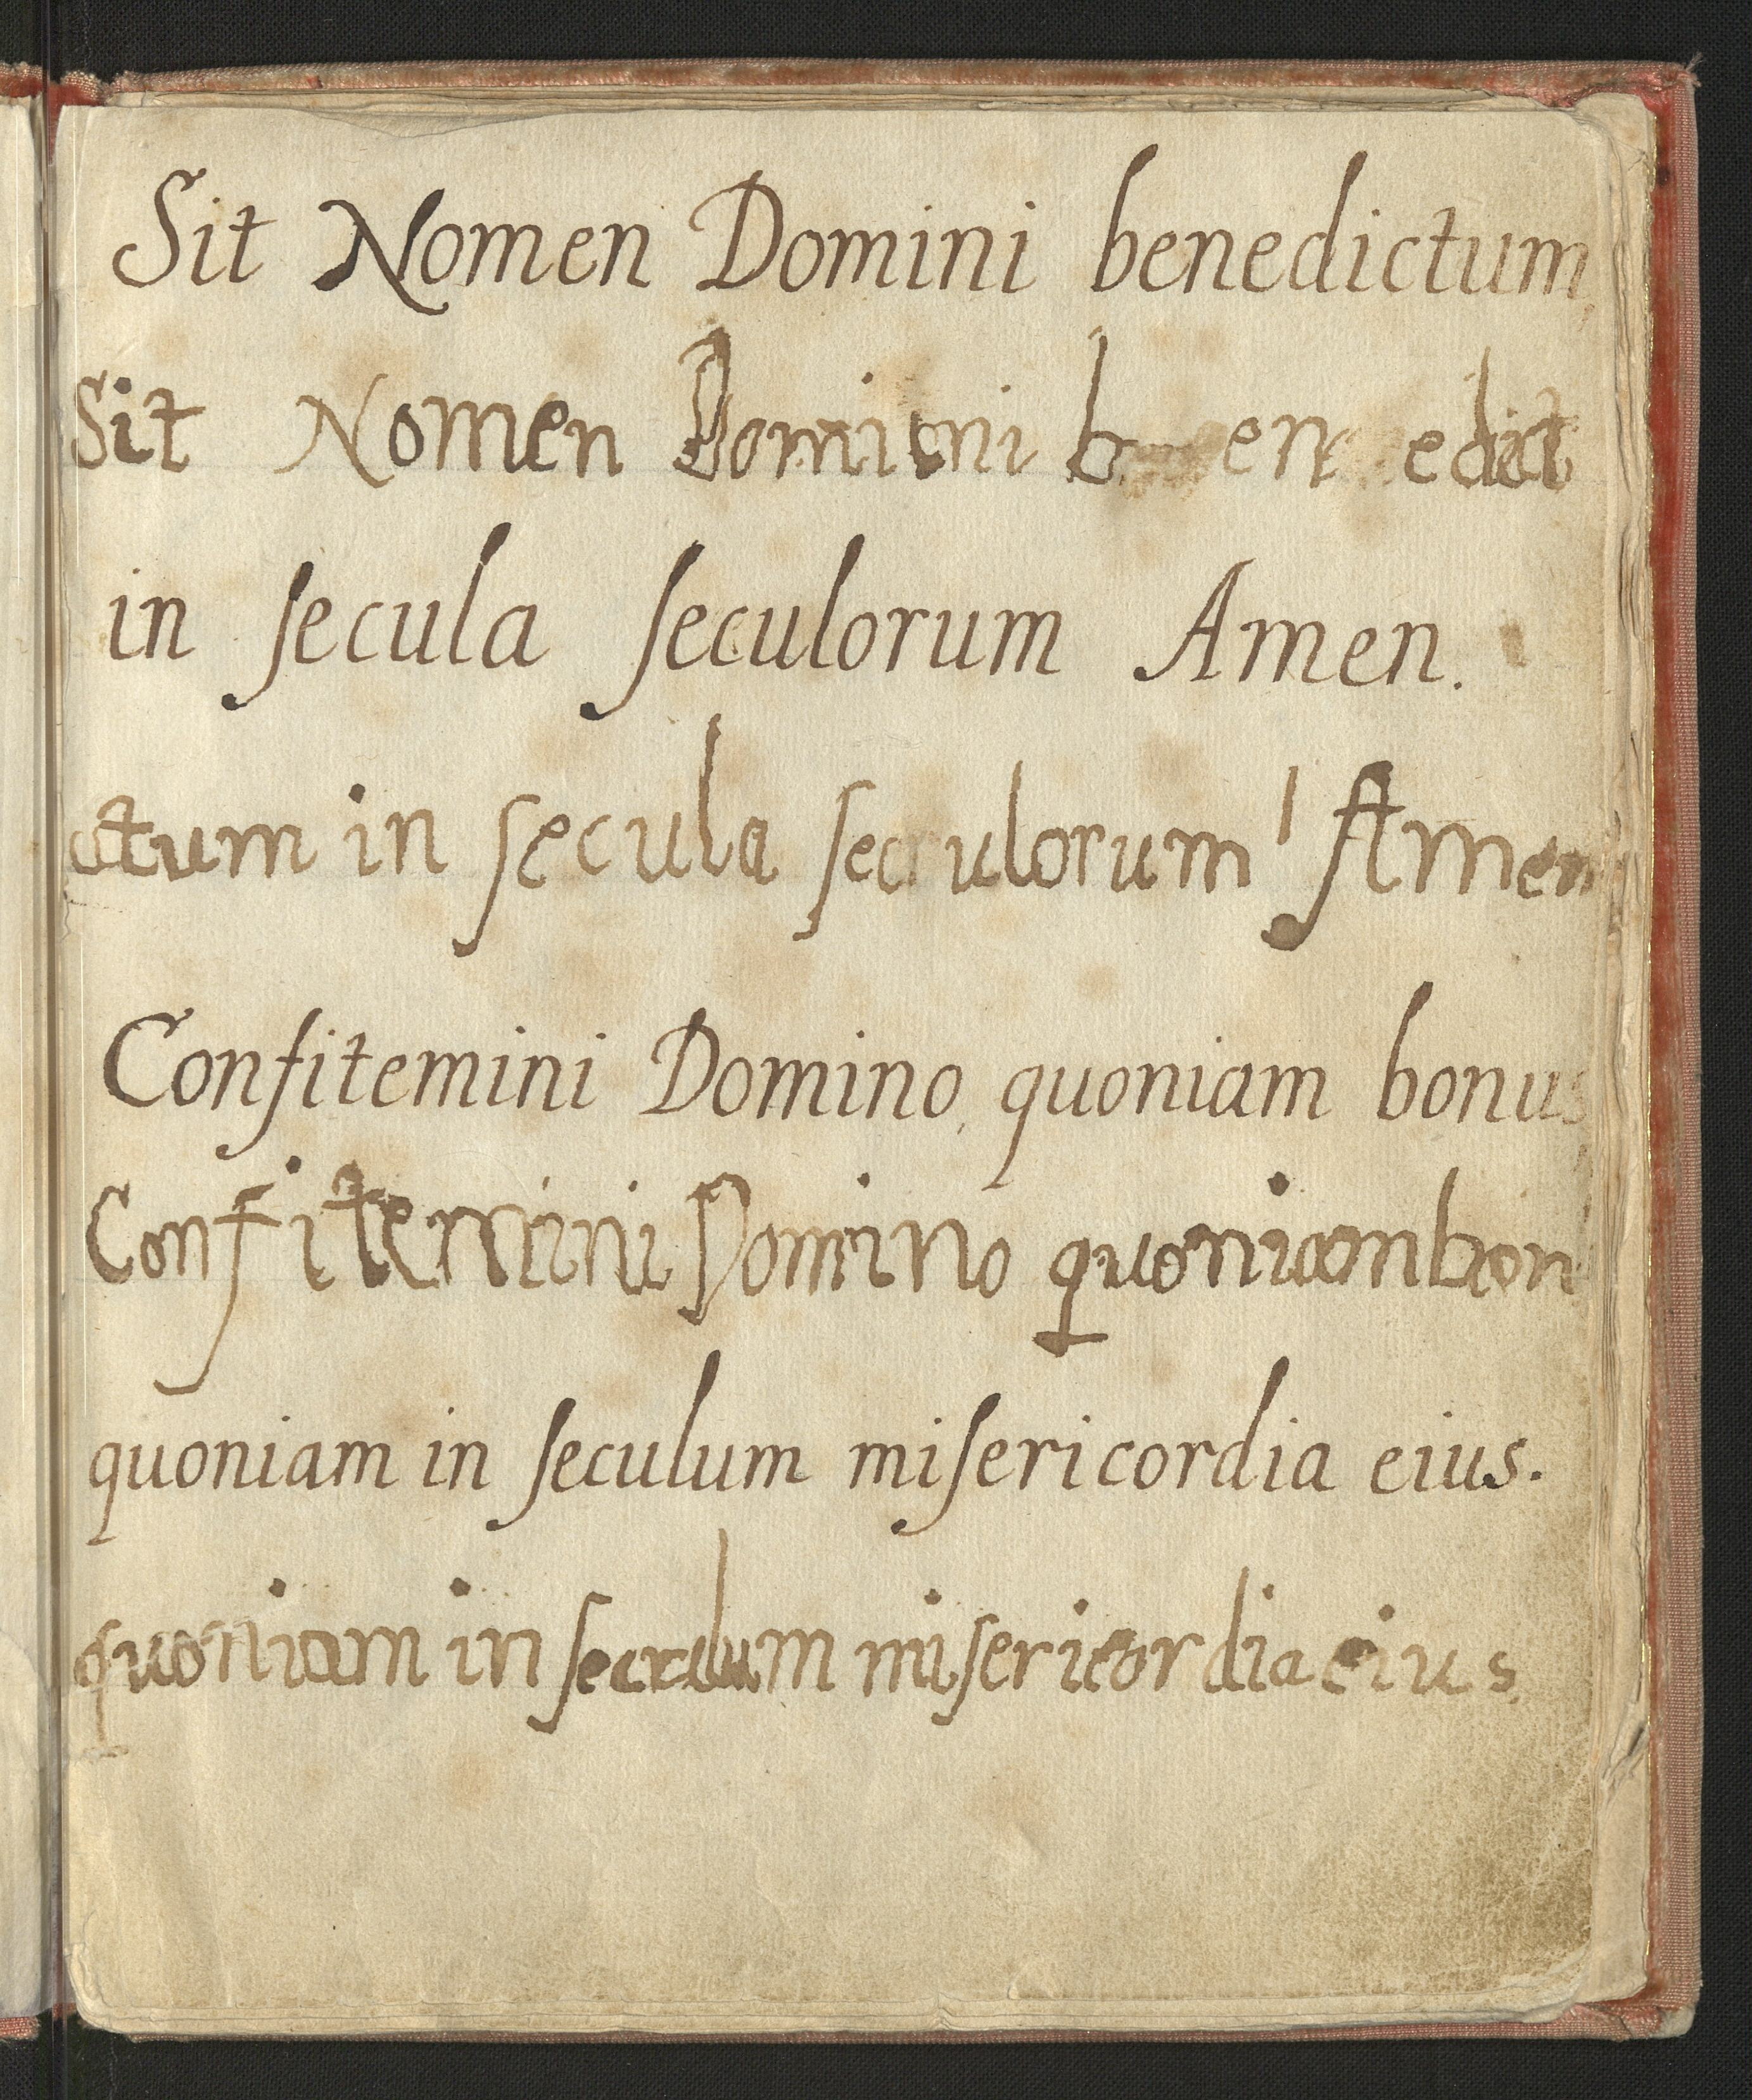 Sit Nomen Domini benedictum,
Sit Nomen Domini b en edict
in ſecula ſeculorum Amen.
ctum in ſecula ſeculorum Amen
Confitemini Domino, quoniam bonus
Confitemini Domino quoniam bon
quoniam in ſeculum miſericordia eius.
quoniam in ſeculum miſericordia eius.